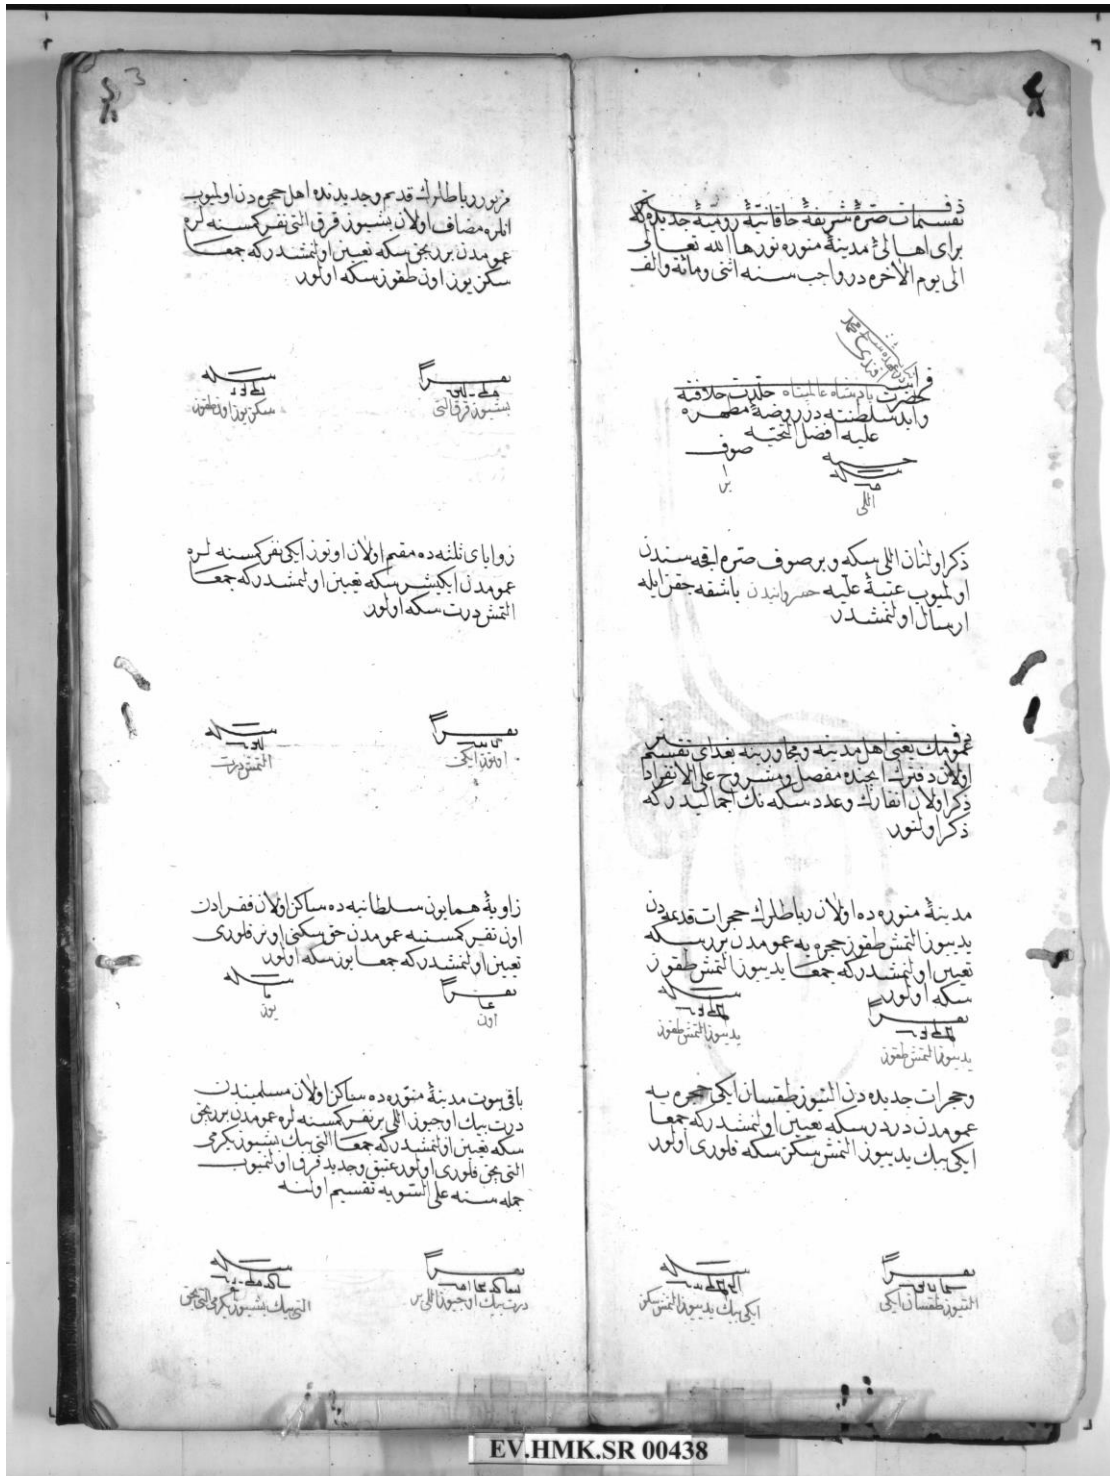 دفتر
تقسیمات صرهٔ شریفهٔ خاقانیهٔ رومیهٔ جدیده که
برای اهالیٔ مدینهٔ منوره نورها الله تعالی
الی یوم الآخره در واجب سنه اثنی ومائة والف
افندی
قرائت
حضرت پادشاه عالمپناه خلدت خلافته
وابد سلطنته در روضهٔ مطهره
علیه افضل التحیه
حسنه صوف
سکه
اللی بر
ذکر اولنان اللی سکه و بر صوف صره اقچه سندن
اولمیوب عتبهٔ علیه باشقه چقن ایله
ارسال اولنمشدر
دفتر
عمومك یعنی اهل مدینه و مجاورینه بغدای تقسیم
اولان دفترك ایچنده مفصل ومشروح علی الانفراد
ذکر اولان انفارك وعدد سکه نك اجمالیدر که
ذکر اولنور
مدینهٔ منوره ده اولان رباطلرك حجرات قدیمه دن
یدییوز التمش طقوز حجره یه عمومدن برر سکه
تعیین اولنمشدر که جمعا یدییوز التمش طقوز
سکه اولور
نفرا سکه
یدییوز التمش طقوز یدییوز التمش طقوز
وحجرات جدیده دن التیوز طقسان ایکی حجره یه
عمومدن دردر سکه تعیین اولنمشدر که جمعا
ایکی بیك یدییوز التمش سکز سکه فلوری اولور
نفرا سکه
التیوز طقسان ایکی ایکی بیك یدییوز التمش سکز
3
مزبور رباطلرك قدیم وجدیدنده اهل حجره دن اولمیوب
انلره مضاف اولان بشیوز قرق التی نفر کمسنه لره
عمومدن برر بچق سکه تعیین اولنمشدر که جمعا
سکز یوز اون طقوز سکه اولور
نفرا سکه
بشیوز قرق التی سکز یوز اون طقوز
زوایای ثلثه ده مقیم اولان اوتوز ایکی نفر کمسنه لره
عمومدن ایکیشر سکه تعیین اولنمشدر که جمعا
التمش درت سکه اولور
نفرا سکه
اوتوز ایکی التمش درت
زاویهٔ همایون سلطانیه ده ساکن اولان فقرادن
اون نفر کمسنیه عمومدن حق سکنی اونر فلوری
تعیین اولنمشدر که جمعا یوز سکه اولور
نفرا سکه
اون یوز
باقی بیوت مدینهٔ منوره ده ساکن اولان مسلمیندن
درت بیك اوچیوز اللی بر نفر کمسنه لره عمومدن برر بچق
سکه تعیین اولنمشدر که جمعا التی بیك بشیوز یکرمی
التی بچق فلوری اولور عتیق وجدید فرق اولنمیوب
جمله سنه علی السویه تقسیم اولنه
نفرا سکه
درت بیك اوچیوز اللی بر التی بیك بشیوز یکرمی التی بچق
EV.HMK.SR 00438